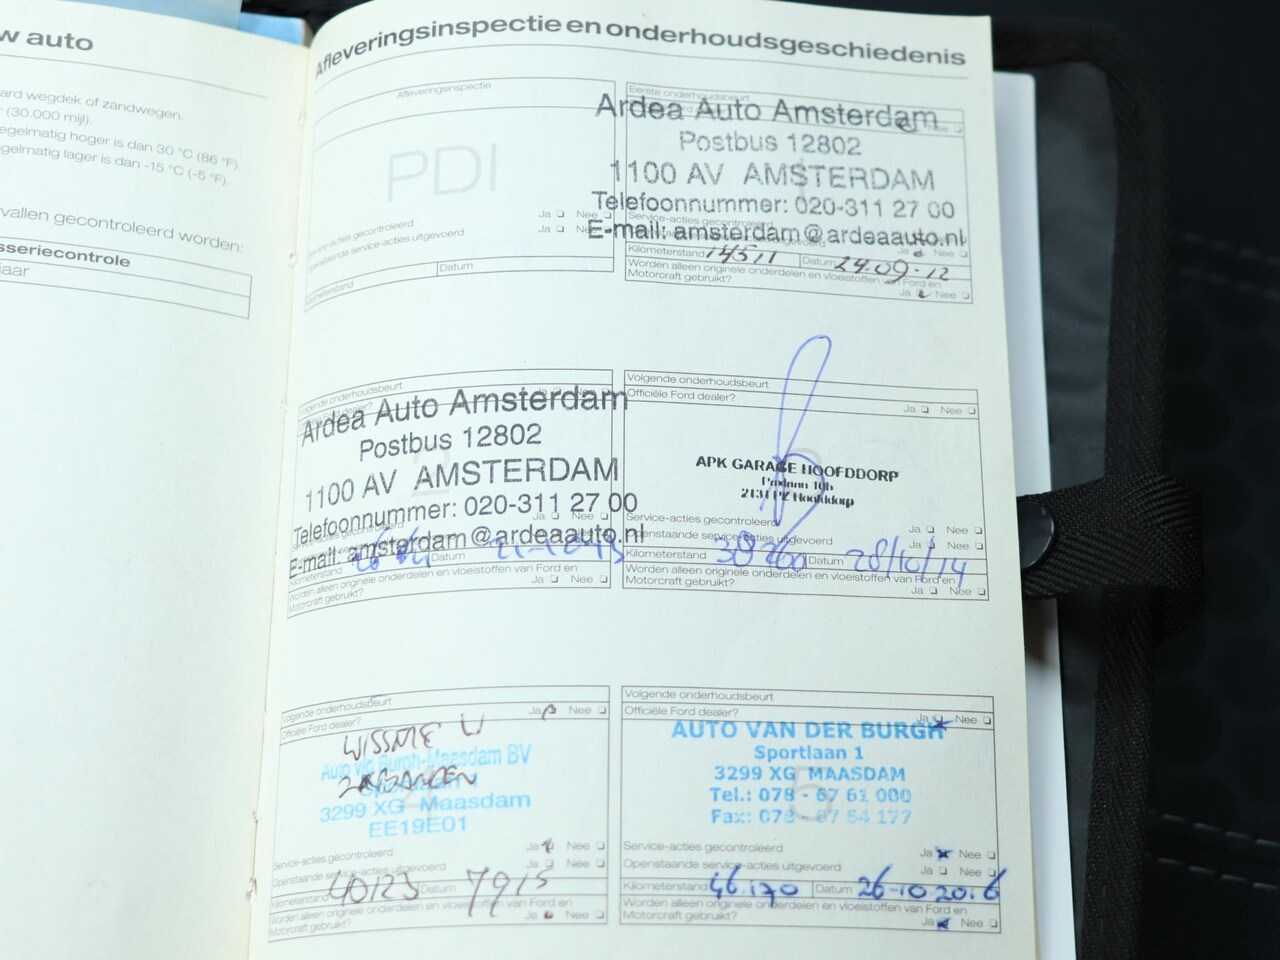 w auto
ard wegdek of zandwegen.
(30.000 mijl).
egelmatig hoger is dan 30 °C (86 °F).
gelmatig lager is dan -15 °C (-5 °F).
vallen gecontroleerd worden:
sseriecontrole
jaar
Afleveringsinspectie en onderhoudsgeschiedenis
Afleveringsinspectie
PDI
Ja Nee
Service-acties gecontroleerd
Ja Nee
Openstaande service-acties uitgevoerd
Datum
Kilometerstand
Eerste onderhoudsbeurt
Ardea Auto Amsterdam
Nee
Postbus 12802
1100 AV AMSTERDAM
Telefoonnummer: 020-311 27 00
Service-acties gecontroleerd
E-mail: amsterdam@ardeaauto.nl
Ja Nee
Kilometerstand 14511 Datum 24.09.12
Worden alleen originele onderdelen en vloeistoffen van Ford en
Motorcraft gebruikt? Ja Nee
Volgende onderhoudsbeurt
Ardea Auto Amsterdam
Postbus 12802
1100 AV AMSTERDAM
Telefoonnummer: 020-311 27 00
Ja Nee
E-mail: amsterdam@ardeaauto.nl
Kilometerstand Datum
Worden alleen originele onderdelen en vloeistoffen van Ford en
Motorcraft gebruikt? Ja Nee
Volgende onderhoudsbeurt
Officiële Ford dealer? Ja Nee
APK GARAGE HOOFDDORP
Service-acties gecontroleerd Ja Nee
Openstaande service-acties uitgevoerd Ja Nee
Kilometerstand 38260 Datum 28/10/14
Worden alleen originele onderdelen en vloeistoffen van Ford en
Motorcraft gebruikt? Ja Nee
Volgende onderhoudsbeurt
Officiële Ford dealer? Ja Nee
WISSME U
Auto v/d Burgh-Maasdam BV
3299 XG Maasdam
EE19E01
Service-acties gecontroleerd Ja Nee
Openstaande service-acties uitgevoerd Ja Nee
Kilometerstand 40123 Datum 7915
Worden alleen originele onderdelen en vloeistoffen van Ford en
Motorcraft gebruikt? Ja Nee
Volgende onderhoudsbeurt
Officiële Ford dealer? Ja Nee
AUTO VAN DER BURGH
Sportlaan 1
5
3299 XG MAASDAM
Tel.: 078 - 67 61 000
Fax: 078 - 67 64 177
Service-acties gecontroleerd Ja Nee
Openstaande service-acties uitgevoerd Ja Nee
Kilometerstand 46.170 Datum 26-10.2016
Worden alleen originele onderdelen en vloeistoffen van Ford en
Motorcraft gebruikt? Ja Nee